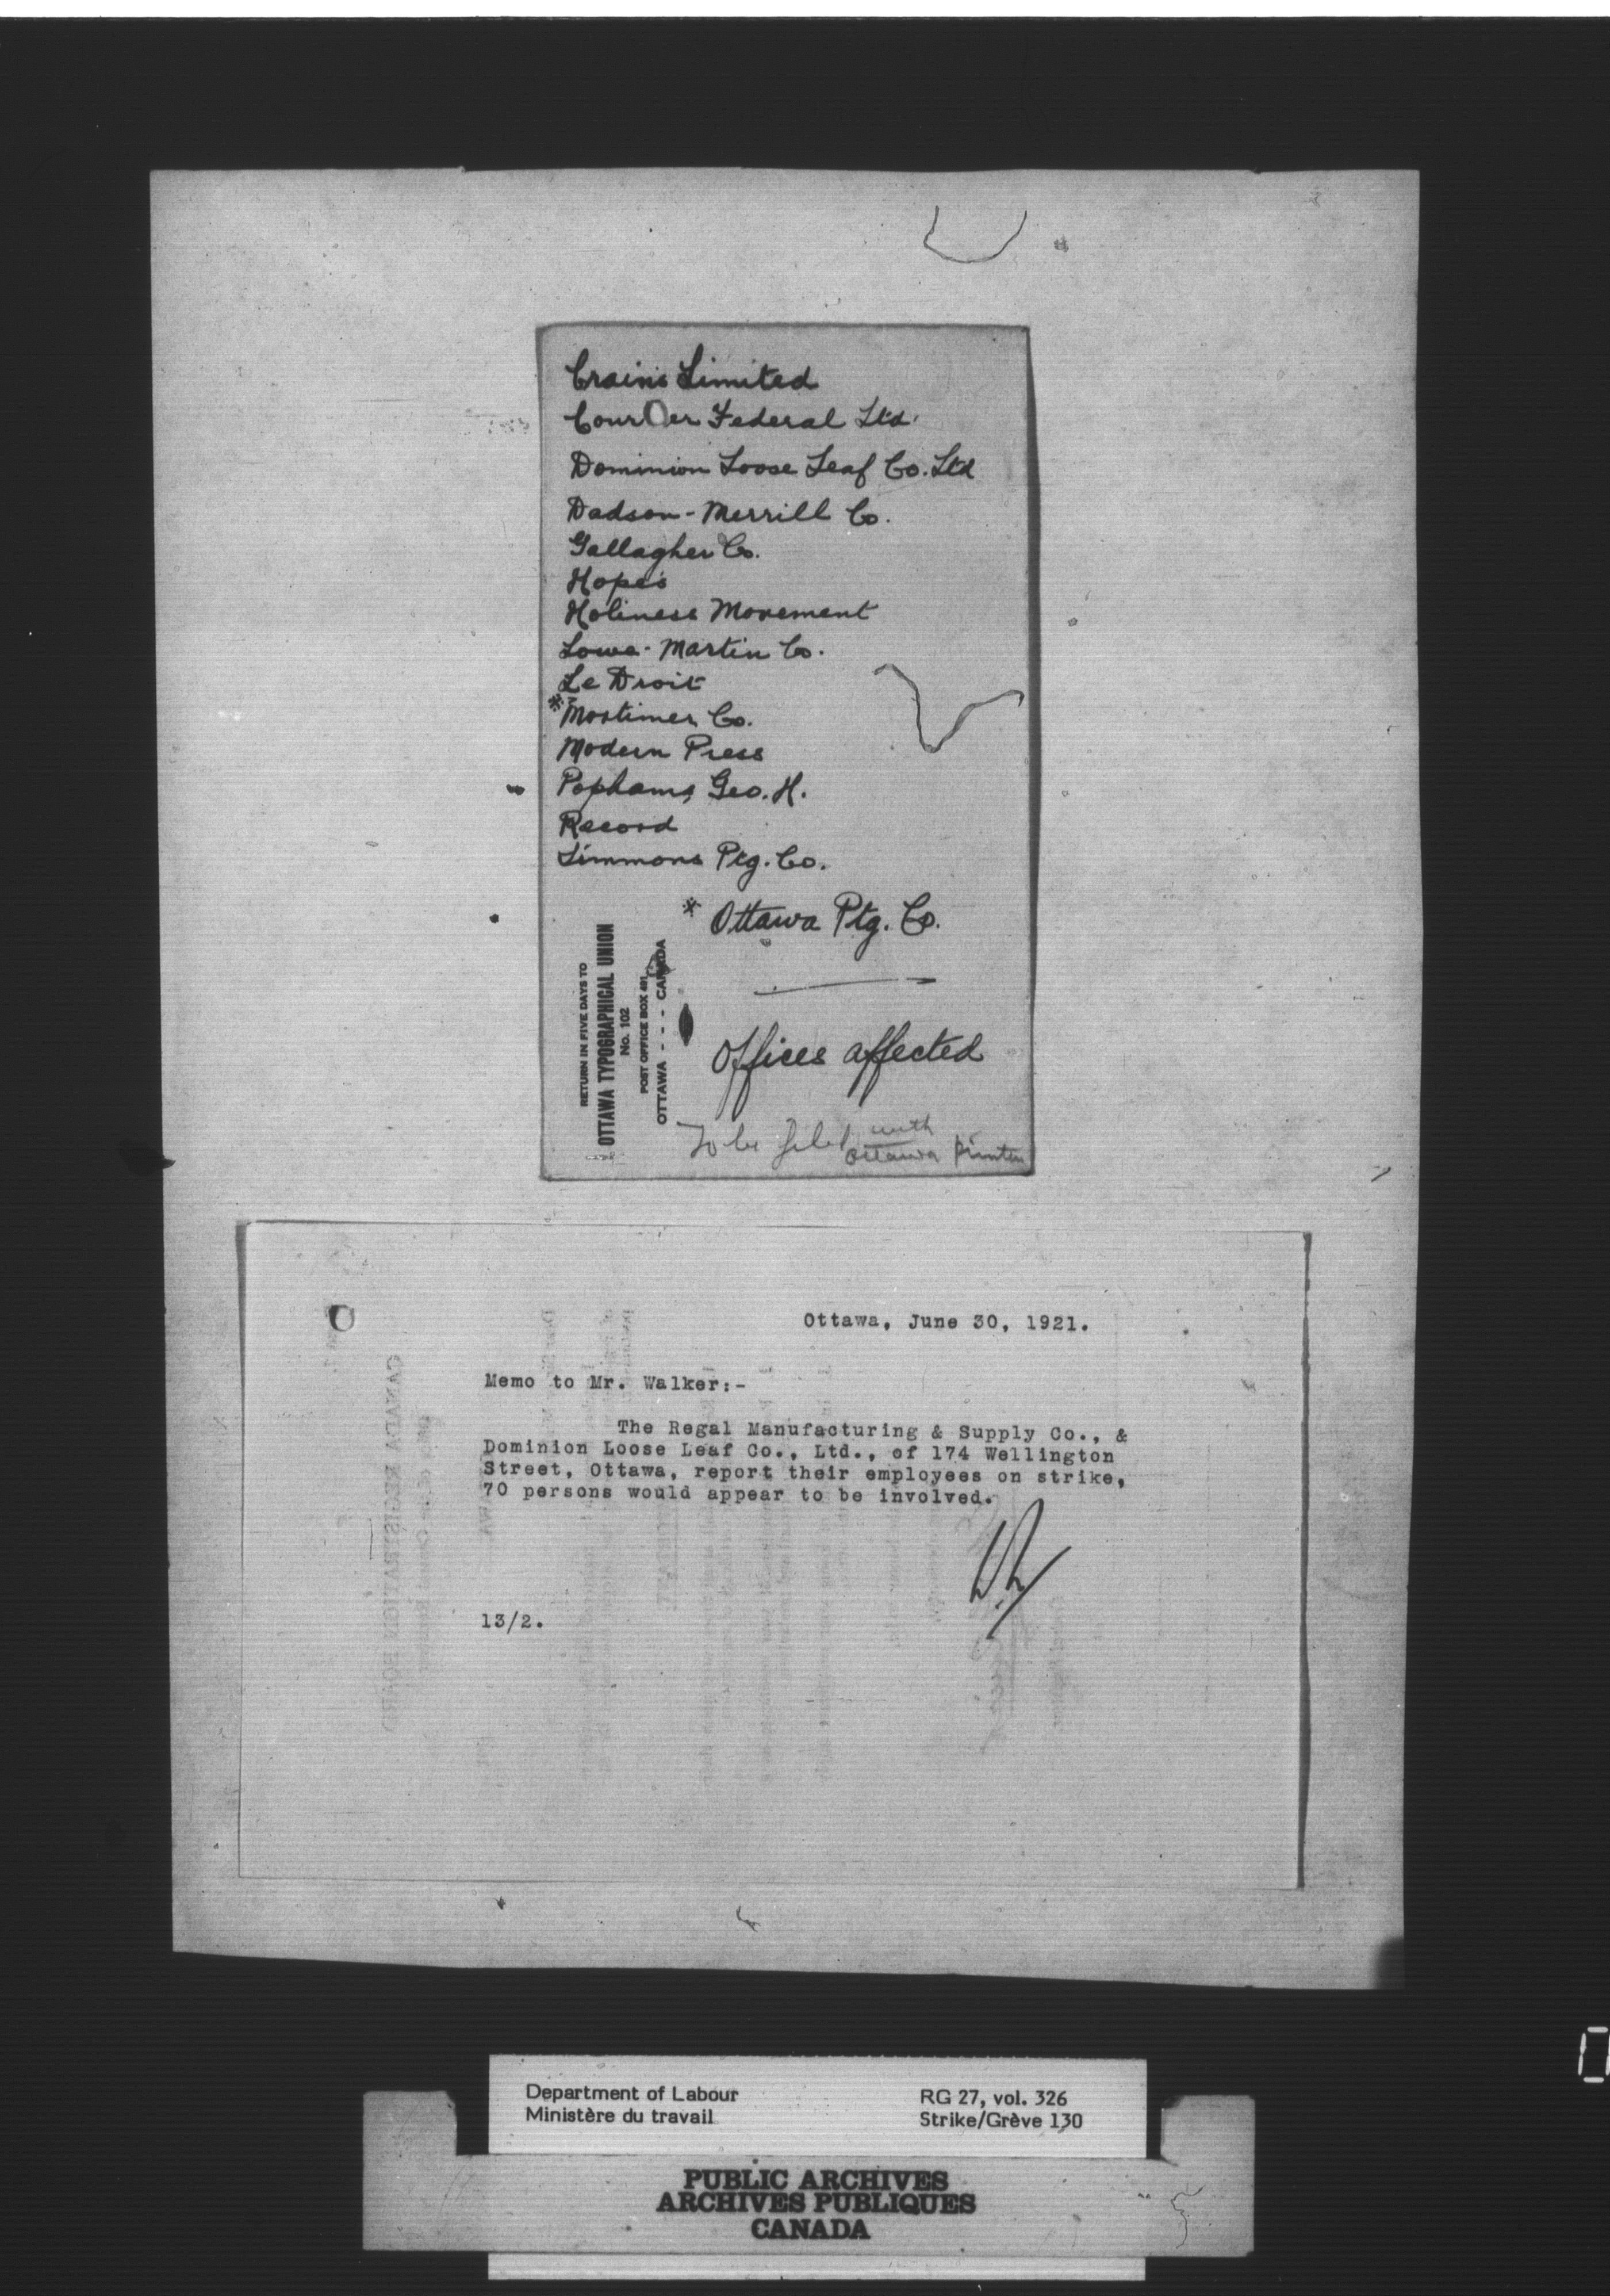 Crains Limited
Courier Federal Ltd.
Dominion Loose Leaf Co. Ltd
Dadson-Merrill Co.
Gallagher Co.
Hope's
Holiness Movement
Lowe-Martin Co.
Le Droit
* Mortimer Co.
Modern Press
Popham, Geo. H.
Record
Simmons Ptg. Co.
* Ottawa Ptg. Co.
RETURN IN FIVE DAYS TO
OTTAWA TYPOGRAPHICAL UNION
No. 102
POST OFFICE BOX 491
OTTAWA - - - CANADA
Offices affected
To be filed with
Ottawa printers
Ottawa, June 30, 1921.
Memo to Mr. Walker:-
The Regal Manufacturing & Supply Co., &
Dominion Loose Leaf Co., Ltd., of 174 Wellington
Street, Ottawa, report their employees on strike,
70 persons would appear to be involved.
13/2.
CANADA REGISTRATION BOARD
Department of Labour
Ministère du travail
RG 27, vol. 326
Strike/Grève 130
PUBLIC ARCHIVES
ARCHIVES PUBLIQUES
CANADA